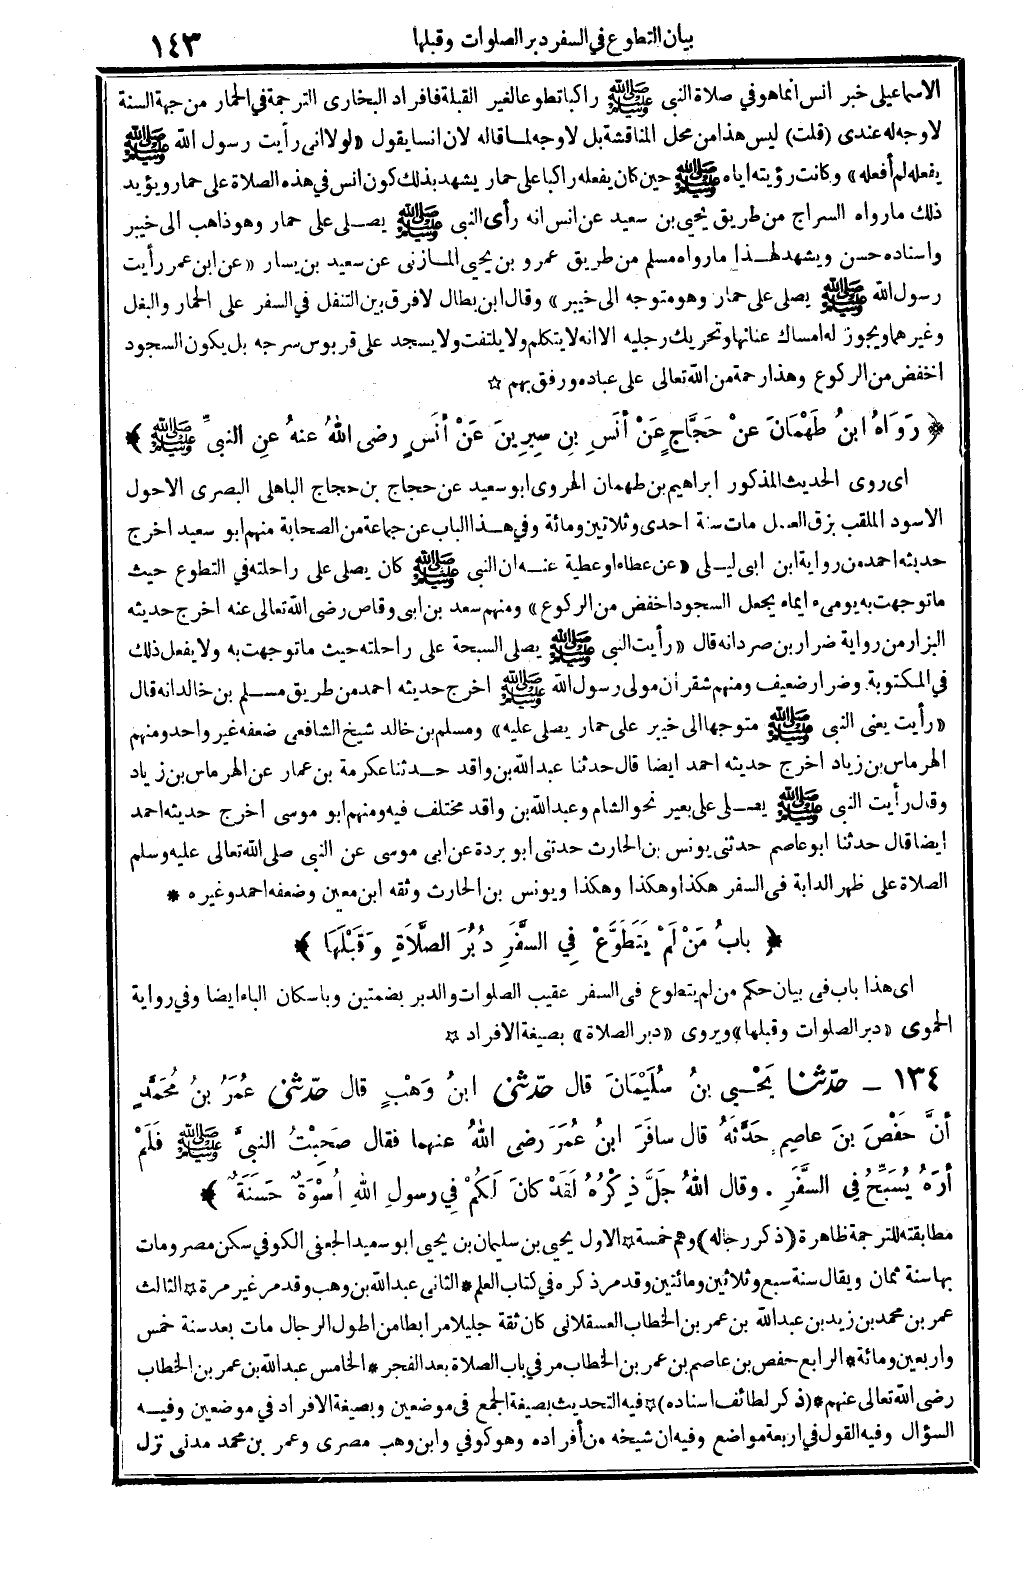 بيان التطوع في السفر دبر الصلوات وقبلها ١٤٣
الاسماعيلى خبر انس انما هو في صلاة النبى ﷺ راكبا تطوعا لغير القبلة فافراد البخارى الترجمة في الحمار من جهة السنة
لا وجه له عندى (قلت) ليس هذا من محل المناقشة بل لا وجه لما قاله لان انسا يقول «لولا انى رأيت رسول الله ﷺ
يفعله لم أفعله» وكانت رؤيته اياه ﷺ حين كان يفعله راكبا على حمار يشهد بذلك كون انس في هذه الصلاة على حمار ويؤيد
ذلك ما رواه السراج من طريق يحيى بن سعيد عن انس انه رأى النبى ﷺ يصلى على حمار وهو ذاهب الى خيبر
واسناده حسن ويشهد لهذا ما رواه مسلم من طريق عمرو بن يحيى المازنى عن سعيد بن يسار «عن ابن عمر رأيت
رسول الله ﷺ يصلى على حمار وهو متوجه الى خيبر» وقال ابن بطال لا فرق بين التنفل في السفر على الحمار والبغل
وغيرهما ويجوز له امساك عنانها وتحريك رجليه الا انه لا يتكلم ولا يلتفت ولا يسجد على قربوس سرجه بل يكون السجود
اخفض من الركوع وهذا رحمة من الله تعالى على عباده ورفق بهم ☆
﴿ رَوَاهُ ابنُ طَهْمَانَ عنْ حَجَّاجٍ عَنْ أنَسِ بنِ سِيرِينَ عَنْ أنَسٍ رضى اللهُ عنهُ عنِ النبىِّ ﷺ ﴾
اى روى الحديث المذكور ابراهيم بن طهمان الهروى ابو سعيد عن حجاج بن حجاج الباهلى البصرى الاحول
الاسود الملقب بزق العسل مات سنة احدى وثلاثين ومائة وفي هذا الباب عن جماعة من الصحابة منهم ابو سعيد اخرج
حديثه احمد من رواية ابن ابى ليلى «عن عطاء او عطية عنه ان النبى ﷺ كان يصلى على راحلته في التطوع حيث
ما توجهت به يومىء ايماء يجعل السجود اخفض من الركوع» ومنهم سعد بن ابى وقاص رضى الله تعالى عنه اخرج حديثه
البزار من رواية ضرار بن صرد انه قال «رأيت النبى ﷺ يصلى السبحة على راحلته حيث ما توجهت به ولا يفعل ذلك
في المكتوبة وضرار ضعيف ومنهم شقران مولى رسول الله ﷺ اخرج حديثه احمد من طريق مسلم بن خالد انه قال
«رأيت يعنى النبى ﷺ متوجها الى خيبر على حمار يصلى عليه» ومسلم بن خالد شيخ الشافعى ضعفه غير واحد ومنهم
الهرماس بن زياد اخرج حديثه احمد ايضا قال حدثنا عبد الله بن واقد حدثنا عكرمة بن عمار عن الهرماس بن زياد
وقال رأيت النبى ﷺ يصلى على بعير نحو الشام وعبد الله بن واقد مختلف فيه ومنهم ابو موسى اخرج حديثه احمد
ايضا قال حدثنا ابو عاصم حدثنى يونس بن الحارث حدثنى ابو بردة عن ابى موسى عن النبى صلى الله تعالى عليه وسلم
الصلاة على ظهر الدابة فى السفر هكذا وهكذا وهكذا ويونس بن الحارث وثقه ابن معين وضعفه احمد وغيره *
﴿ بابُ مَنْ لَمْ يَتَطَوَّعْ فِي السَّفَرِ دُبُرَ الصَّلَاةِ وَقَبْلَهَا ﴾
اى هذا باب فى بيان حكم من لم يتطوع فى السفر عقيب الصلوات والدبر بضمتين وباسكان الباء ايضا وفي رواية
الحموى «دبر الصلوات وقبلها» ويروى «دبر الصلاة» بصيغة الافراد ☆
١٣٤ ــ حدّثنا يَحْيى بنُ سُلَيْمَانَ قال حدّثنى ابنُ وَهْبٍ قال حدّثنى عُمَرُ بنُ مُحَمَّدٍ
أنَّ حَفْصَ بنَ عاصِمٍ حَدَّثَهُ قال سافَرَ ابنُ عُمَرَ رضى اللهُ عنهما فقال صَحِبْتُ النبىَّ ﷺ فَلَمْ
أرَهُ يُسَبِّحُ فِى السَّفَرِ . وقال اللهُ جَلَّ ذِكْرُهُ لَقَدْ كانَ لَكُمْ فِي رسولِ اللهِ اُسْوَةٌ حَسَنَةٌ ﴾
مطابقته للترجمة ظاهرة (ذكر رجاله) وهم خمسة ☆ الاول يحيى بن سليمان بن يحيى ابو سعيد الجعفى الكوفي سكن مصر ومات
بها سنة ثمان ويقال سنة سبع وثلاثين ومائتين وقد مر ذكره في كتاب العلم * الثانى عبد الله بن وهب وقد مر غير مرة ☆ الثالث
عمر بن محمد بن زيد بن عبد الله بن عمر بن الخطاب العسقلانى كان ثقة جليلا مرابطا من اطول الرجال مات بعد سنة خمس
واربعين ومائة * الرابع حفص بن عاصم بن عمر بن الخطاب مر في باب الصلاة بعد الفجر * الخامس عبد الله بن عمر بن الخطاب
رضى الله تعالى عنهم * (ذكر لطائف اسناده) ☆ فيه التحديث بصيغة الجمع فى موضعين وبصيغة الافراد في موضعين وفيه
السؤال وفيه القول في اربعة مواضع وفيه ان شيخه من أفراده وهو كوفي وابن وهب مصرى وعمر بن محمد مدنى نزل